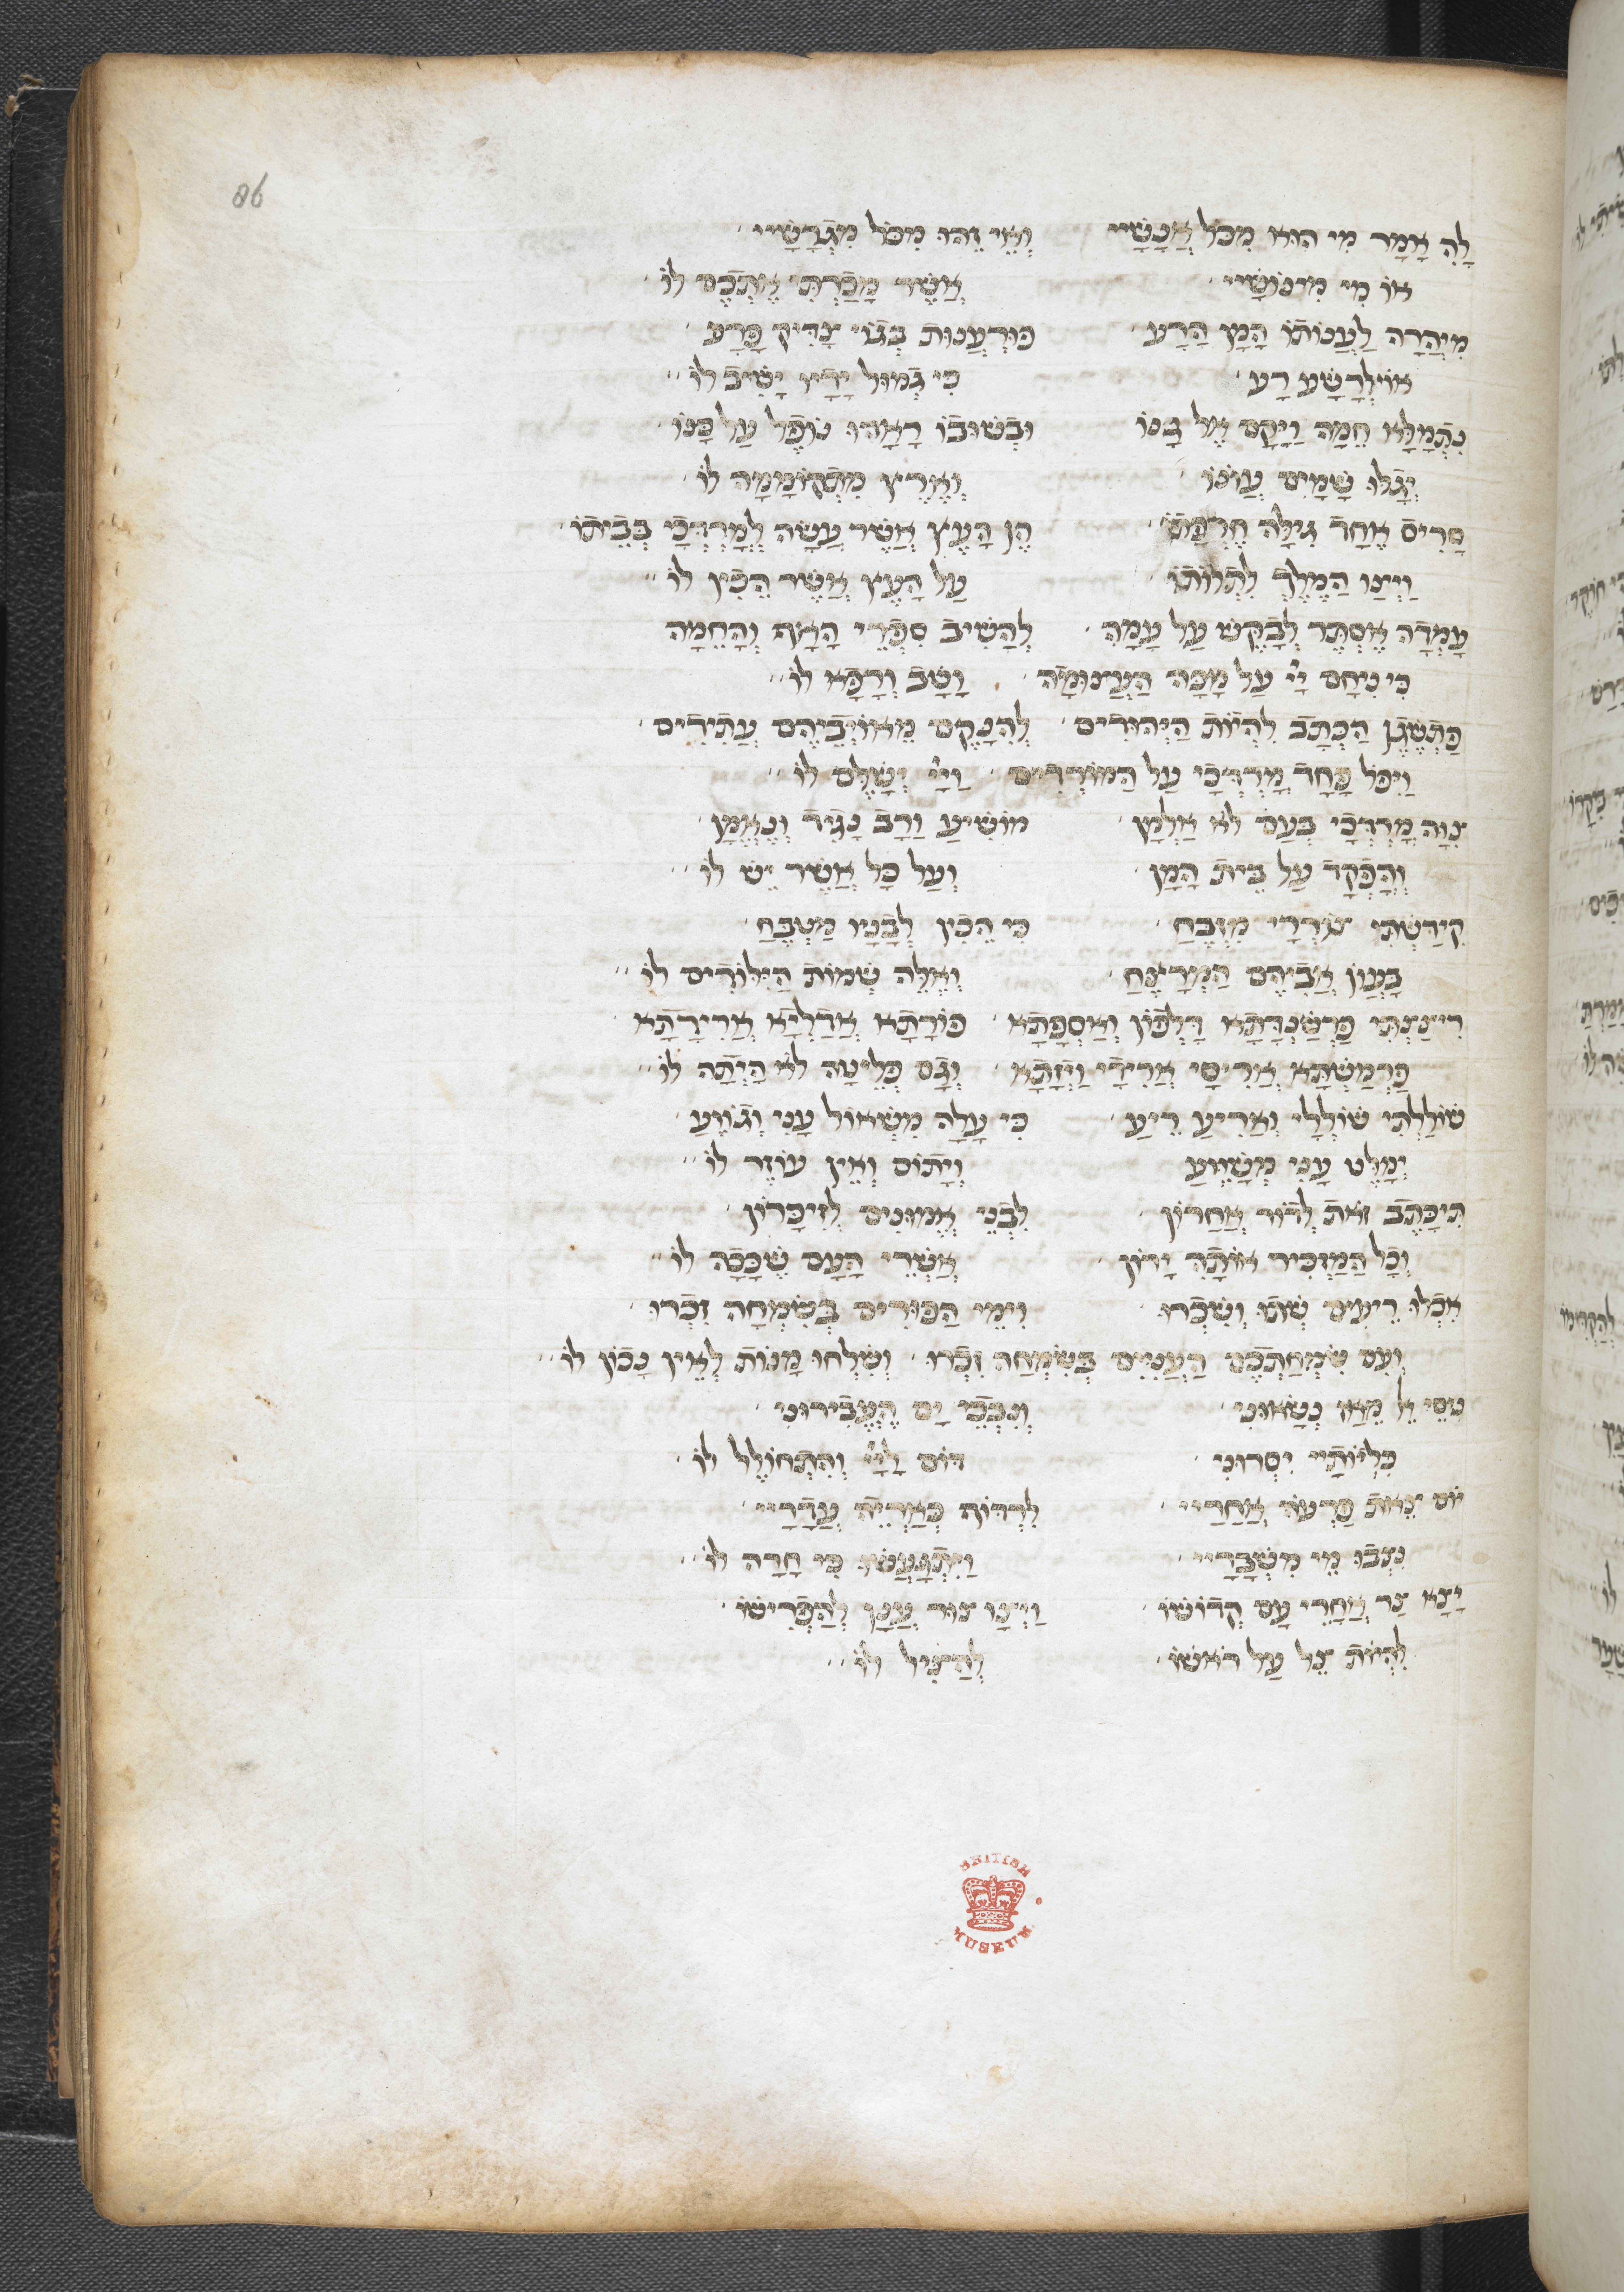 86
לָהּ אָמַר מִי הוּא מִכֹּל אֲנָשַׁיי וְאֵי זֶהוּ מִכֹּל מִגְרָשַׁיי
אוֹ מִי מִנּוֹשַׁיי אֲשֶׁר מָכַרְתִּי אֶתְכֶם לוֹ
מִיהֲרָה לַעֲנוֹתוֹ הָמָן הָרָע פּוּרְעָנוּת בְּגוֹי צַדִּיק פָּרָע
אוֹי לְרָשָׁע רָע כִּי גְמוּל יָדָיו יָשִׁיב לוֹ
נִתְמַלָּא חֵמָה וַיָּקָם אֶל גַּנּוֹ וּבְשׁוּבוֹ רָאָהוּ נוֹפֵל עַל פָּנוֹ
יְגַלּוּ שָׁמַיִם עֲוֹנוֹ וְאֶרֶץ מִתְקוֹמָמָה לוֹ
סָרִיס אֶחָד גִּילָּה חֶרְפָּתוֹ הֵן הָעֵץ אֲשֶׁר עָשָׂה לְמָרְדְּכַי בְּבֵיתוֹ
וַיְצַו הַמֶּלֶךְ לִתְלוֹתוֹ עַל הָעֵץ אֲשֶׁר הֵכִין לוֹ
עָמְדָה אֶסְתֵּר לְבַקֵּשׁ עַל עַמָּהּ לְהָשִׁיב סִפְרֵי הָאַף וְהַחֵמָה
כִּי נִחָם יְיָ עַל מַכָּה הָעֲצוּמָה וָשָׁב וְרָפָא לוֹ
פַּתְשֶׁגֶן הַכְּתָב לִהְיוֹת הַיְּהוּדִים לְהִנָּקֵם מֵאוֹיְבֵיהֶם עֲתִידִים
וַיִּפֹּל פַּחַד מָרְדְּכַי עַל הַמּוֹרְדִים וַיְיָ יְשַׁלֵּם לוֹ
צִוָּה מָרְדְּכַי בְּעַם לֹא אַלְמָן מוֹשִׁיעַ וָרָב נָגִיד וְנֶאֱמָן
וְהָפְקַד עַל בֵּית הָמָן וְעַל כָּל אֲשֶׁר יֶשׁ לוֹ
קִידַּשְׁתִּי צֹרְרַי מִזְבֵּחַ כִּי הֵכִין לְבָנָיו מַטְבֵּחַ
בַּעֲוֹן אֲבִיהֶם הַמְרַצֵּחַ וְאֵלֶּה שְׁמוֹת הַיִּלּוֹדִים לוֹ
רִיצַּצְתִּי פַּרְשַׁנְדָּתָא דַּלְפוֹן וְאַסְפָּתָא פּוֹרָתָא אֲדַלְיָא אֲרִידָתָא
פַּרְמַשְׁתָּא אֲרִיסַי אֲרִידַי וַיְזָתָא וְגַם פְּלֵיטָה לֹא הָיְתָה לוֹ
שׁוֹלַלְתִּי שׁוֹלְלָי וְאָרִיעַ רֵיעַ כִּי עָלָה מִשְּׁאוֹל עָנִי וְגוֹוֵעַ
יְמַלֵּט עָנִי מְשַׁוֵּעַ וְיָתוֹם וְאֵין עוֹזֵר לוֹ
תִּיכָּתֵב זֹאת לְדוֹר אַחֲרוֹן לִבְנֵי אֱמוּנִים לְזִיכָּרוֹן
וְכָל הַמַּזְכִּיר אוֹתָהּ יָרוֹן אַשְׁרֵי הָעָם שֶׁכָּכָה לוֹ
אִכְלוּ רֵיעִים שְׁתוּ וְשִׁכְרוּ וִימֵי הַפּוּרִים בְּשִׂמְחָה זִכְרוּ
וְעִם שִׂמְחַתְכֶם הָעֲנִיִּים בְּשִׂמְחָה זִכְרוּ וְשִׁלְחוּ מָנוֹת לְאֵין נָכוֹן לוֹ
נִסֵּי אֵל מֵאָז נְשָׂאוּנִי וְנִבְכֵי יָם הֶעֱבִירוּנִי
כִּלְיוֹתַיי יִסְּרוּנִי דּוֹם לַיְיָ וְהִתְחוֹלֵל לוֹ
יוֹם צֵאת פַּרְעֹה אַחֲרַיי לִרְדּוֹת כְּאַרְיֵה עֲדָרַיי
נִצְּבוּ מֵי מִשְׁבָּרַיי וַיִּתְגָּעֲשׁוּ כִּי חָרָה לוֹ
יָצָא צַר אַחֲרֵי עַם קְדוֹשׁוֹ וַיְצַו צוּר עָנָן לְהַפְרִישׁוֹ
לִהְיוֹת צֵל עַל רֹאשׁוֹ לְהַצִּיל לוֹ
BRITISH
MUSEUM